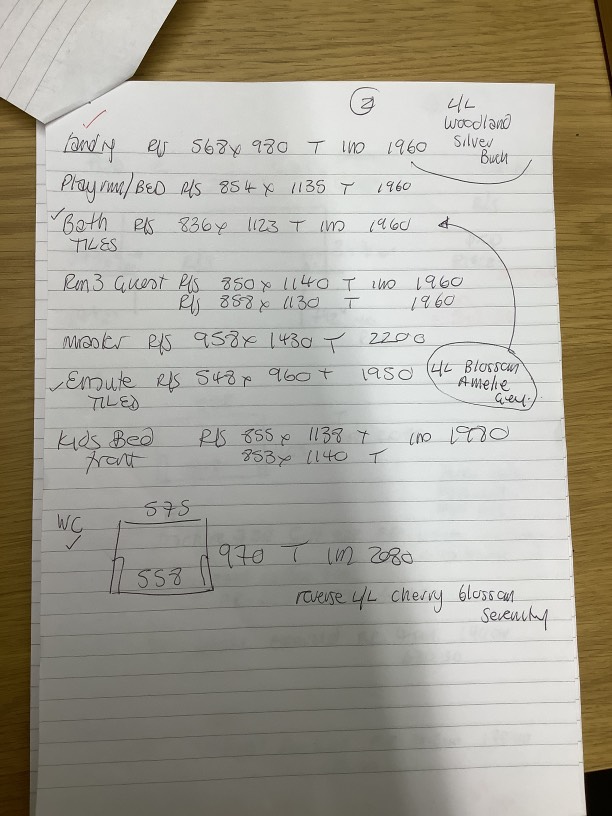 ②
L/L
Woodland
Silver
Birch
Landry R/S 568 x 980 T IMO 1960
Playrm/BED R/S 854 x 1135 T 1960
✓ Bath R/S 836 x 1123 T IMO 1960
TILES
Rm3 Guest R/S 850 x 1140 T IMO 1960
R/S 858 x 1130 T 1960
Master R/S 958 x 1430 T 2200
✓ Ensuite R/S 548 x 960 T 1950
TILED
L/L Blossom
Amelie
Grey.
Kids Bed R/S 855 x 1138 T IMO 1980
front 853 x 1140 T
WC
✓
575
558
970 T IM 2080
reverse L/L cherry blossom
Serenity